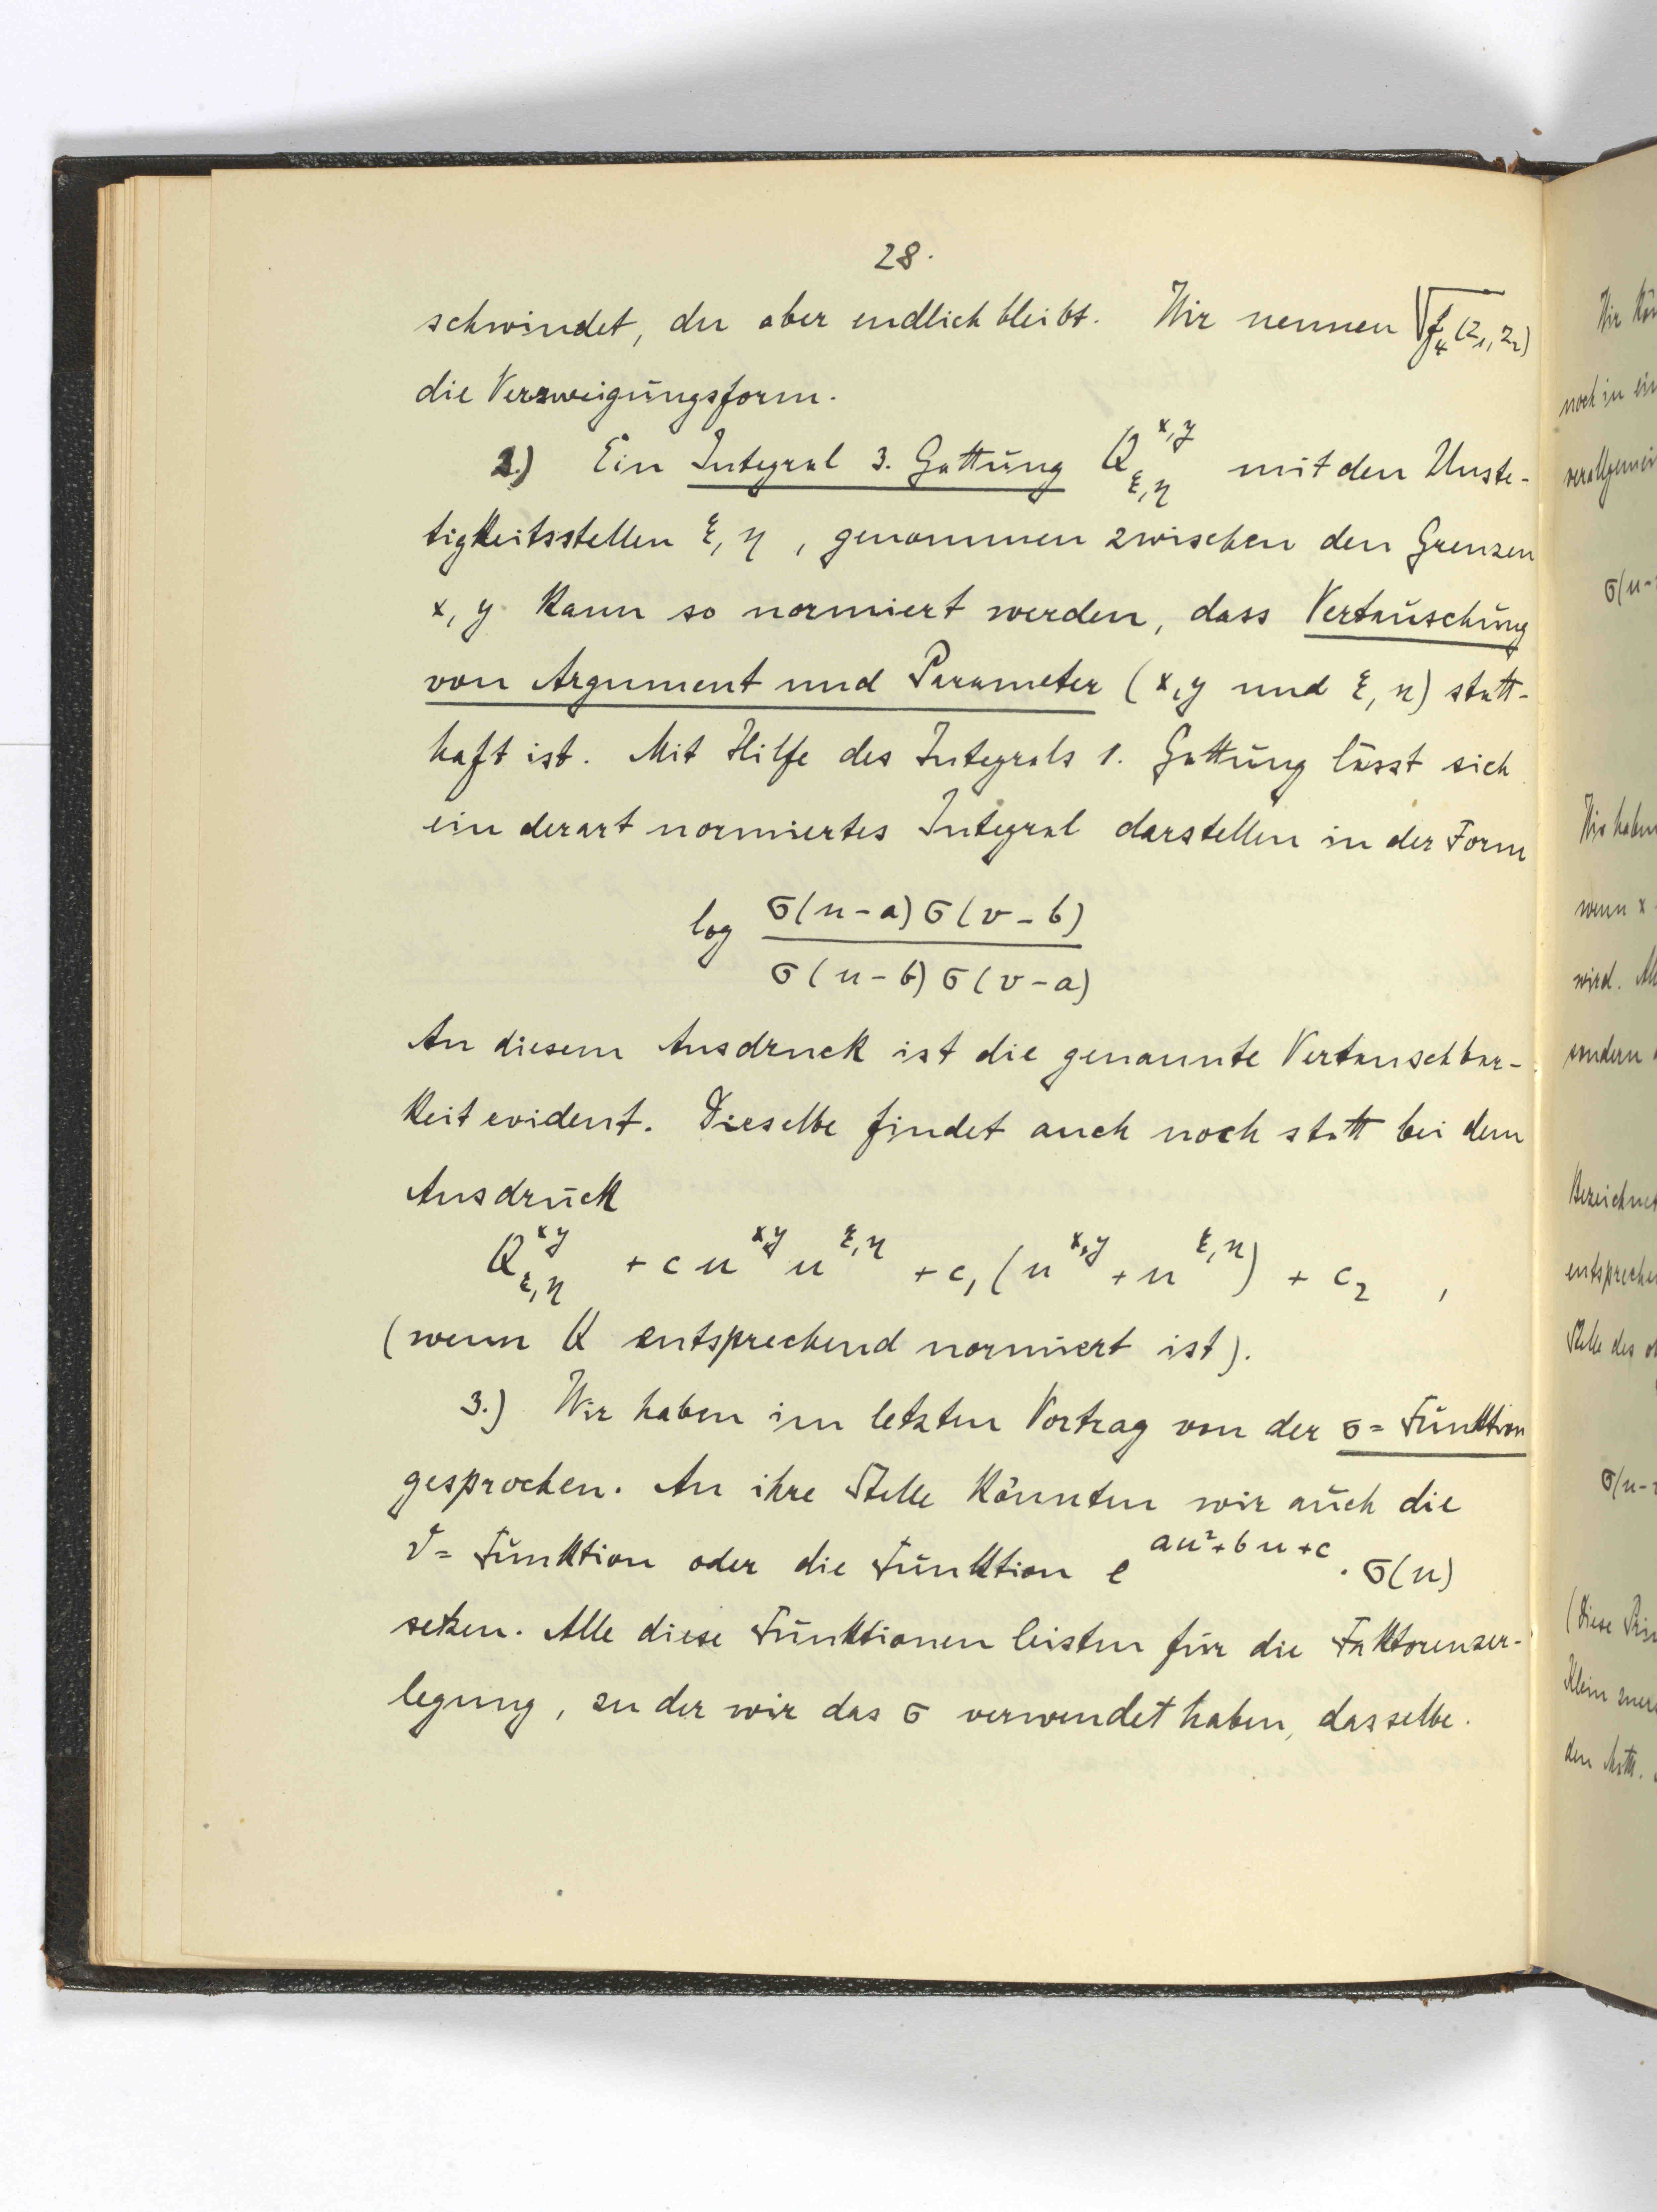 28.
schwindet, du aber endlich bleibt. Wir nennen √f₄(z₁, z₂)
die Verzweigungsform.
2.) Ein Integral 3. Gattung Q^{x,y}_{ξ,η} mit den Unste-
tigkeitsstellen ξ, η, genommen zwischen den Grenzen
x, y kann so normiert werden, dass Vertauschung
von Argument und Parameter (x, y und ξ, η) statt-
haft ist. Mit Hilfe des Integrals 1. Gattung lässt sich
ein derart normiertes Integral darstellen in der Form
log σ(u-a) σ(v-b) / σ(u-b) σ(v-a)
An diesem Ausdruck ist die genannte Vertauschbar-
keit evident. Dieselbe findet auch noch statt bei dem
Ausdruck
Q^{xy}_{ξ,η} + c u^{x,y} u^{ξ,η} + c₁ (u^{x,y} + u^{ξ,η}) + c₂ ,
(wenn Q entsprechend normiert ist).
3.) Wir haben im letzten Vortrag von der σ = Funktion
gesprochen. An ihre Stelle könnten wir auch die
ϑ = Funktion oder die Funktion e^{au²+bu+c} · σ(u)
setzen. Alle diese Funktionen leisten für die Faktorenzer-
legung, zu der wir das σ verwendet haben, dasselbe.
Wir
noch in
σ(u-
Wir haben
wenn x
wird.
sondern
Bezeichnet
Stelle des
σ(u-
(Diese
Klein
den Math.